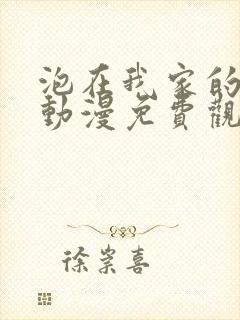 泡在我家的
動漫免費觀
徐崇喜